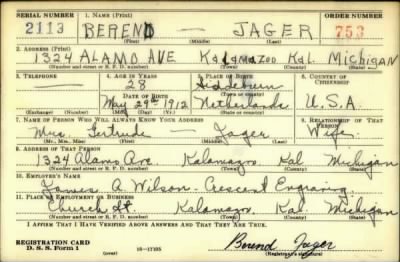 SERIAL NUMBER 1. NAME (Print) ORDER NUMBER
2113 BEREND — JAGER 753
(First) (Middle) (Last)
2. ADDRESS (Print)
1324 ALAMO AVE Kalamazoo Kal. Michigan
(Number and street or R. F. D. number) (Town) (County) (State)
3. TELEPHONE 4. AGE IN YEARS 5. PLACE OF BIRTH 6. COUNTRY OF CITIZENSHIP
— 28
DATE OF BIRTH
May 29th 1912 Netherlands U.S.A.
(Exchange) (Number) (Mo.) (Day) (Yr.) (State or country)
7. NAME OF PERSON WHO WILL ALWAYS KNOW YOUR ADDRESS 8. RELATIONSHIP OF THAT PERSON
Mrs. Gertrude — Jager Wife
(Mr., Mrs., Miss) (First) (Middle) (Last)
9. ADDRESS OF THAT PERSON
1324 Alamo Ave. Kalamazoo Kal Michigan
(Number and street or R. F. D. number) (Town) (County) (State)
10. EMPLOYER'S NAME
James A. Wilson - Crescent Engraving
11. PLACE OF EMPLOYMENT OR BUSINESS
Church St Kalamazoo Kal Michigan
(Number and street or R. F. D. number) (Town) (County) (State)
I AFFIRM THAT I HAVE VERIFIED ABOVE ANSWERS AND THAT THEY ARE TRUE.
REGISTRATION CARD
D. S. S. Form 1 16—17105 Berend Jager
(Registrant's signature)